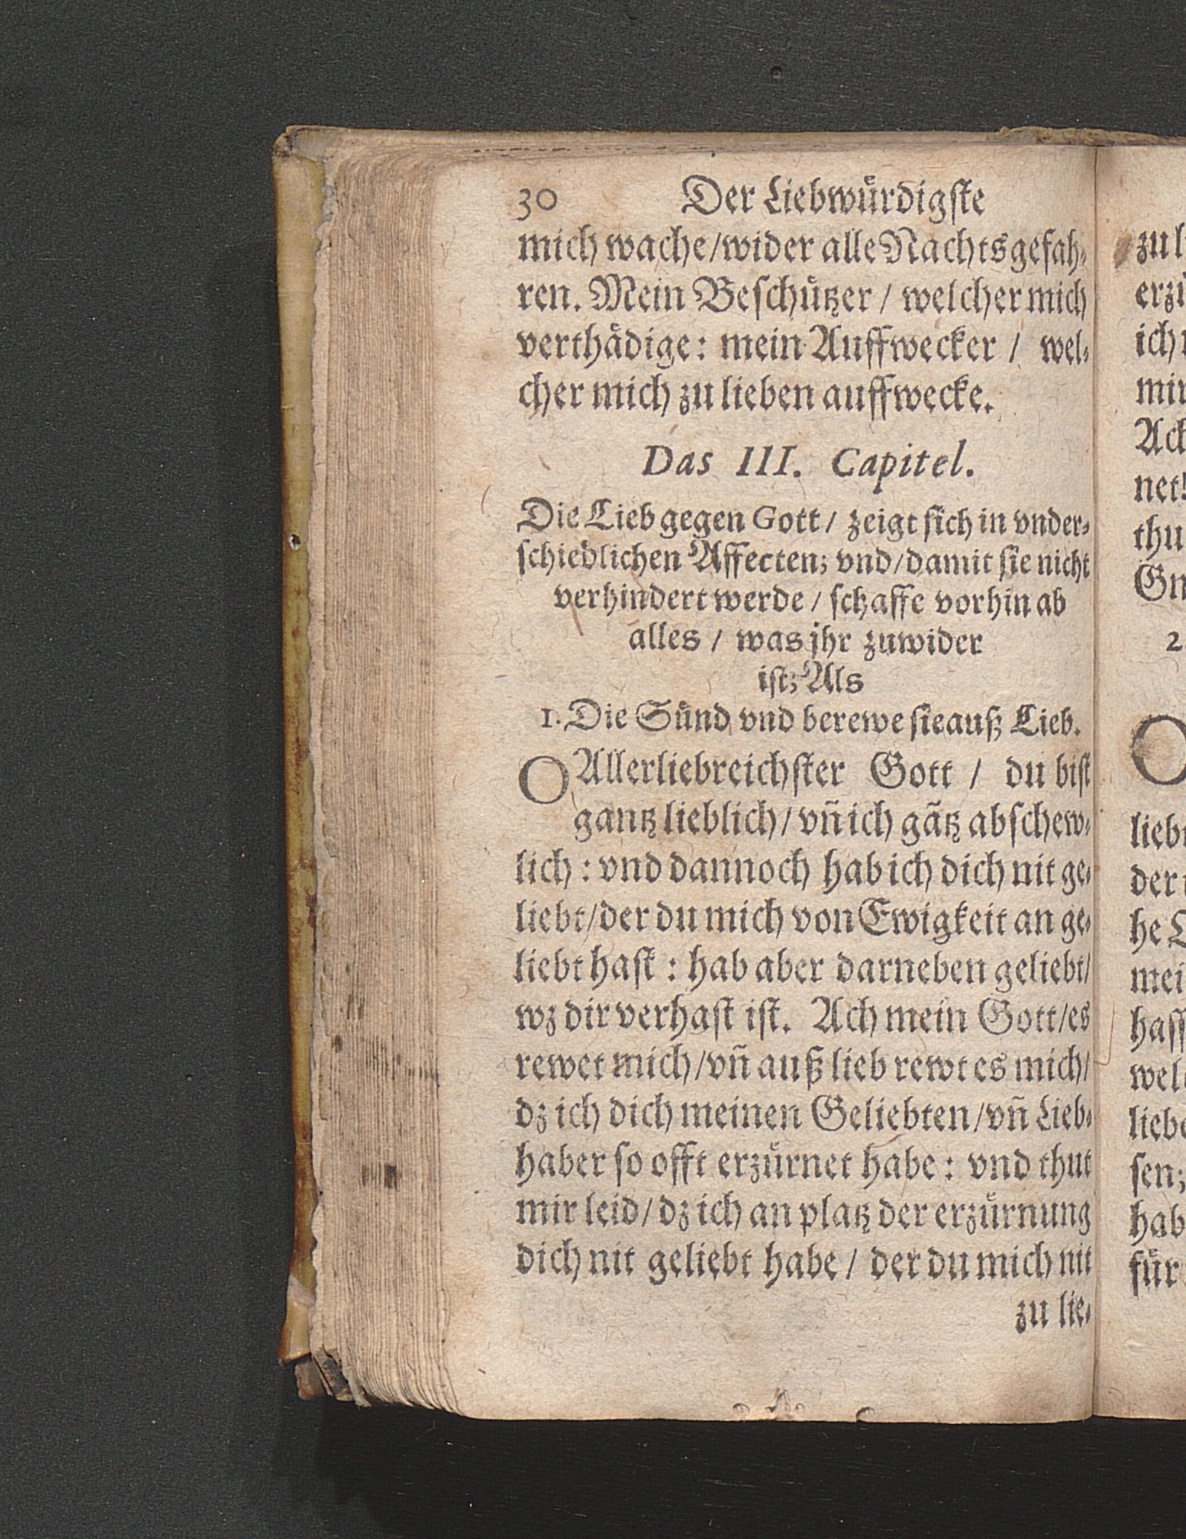 30 Der Liebwürdigste
mich wache/wider alle Nachtsgefah-
ren. Mein Beschützer / welcher mich
verthädige: mein Auffwecker / wel-
cher mich zu lieben auffwecke.
Das III. Capitel.
Die Lieb gegen Gott / zeigt sich in vnder-
schiedlichen Affecten; vnd/damit sie nicht
verhindert werde / schaffe vorhin ab
alles / was jhr zuwider
ist; Als
1. Die Sünd vnd berewe sie auß Lieb.
O Allerliebreichster Gott / du bist
gantz lieblich/vñ ich gãtz abschew-
lich: vnd dannoch hab ich dich nit ge-
liebt/der du mich von Ewigkeit an ge-
liebt hast: hab aber darneben geliebt/
wz dir verhast ist. Ach mein Gott/es
rewet mich/vñ auß lieb rewt es mich/
dz ich dich meinen Geliebten/vñ Lieb-
haber so offt erzürnet habe: vnd thut
mir leid/dz ich an platz der erzürnung
dich nit geliebt habe / der du mich nit
zu lie-
zu l
erzü
ich
mir
Ack
net!
thu
Gn
2
O
lieb
der
he L
mei
hass
wel
liebe
sen;
hab
für